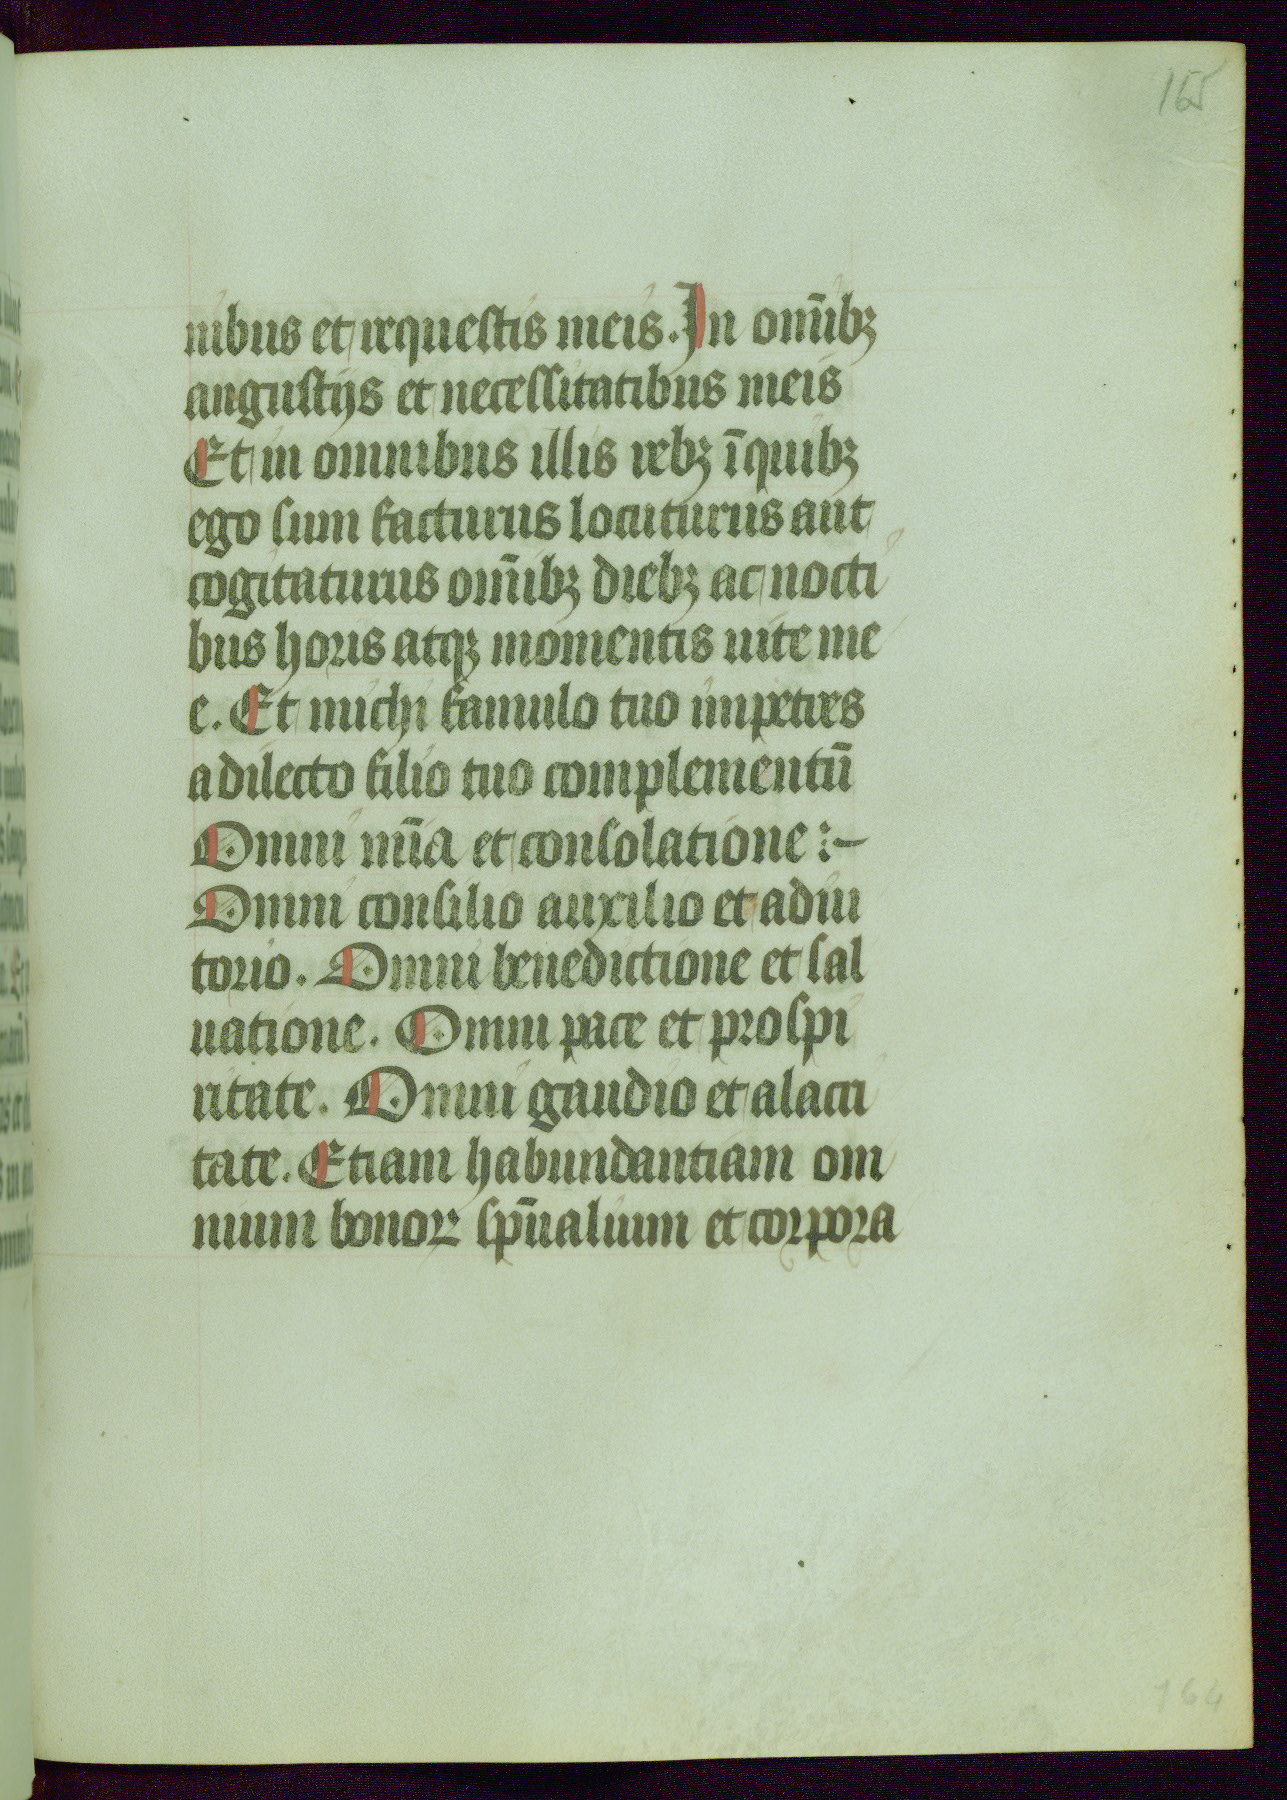 165
nibus et requestis meis. In om̄ibꝫ
angustijs et necessitatibus meis
Et in omnibus illis rebꝫ ī quibꝫ
ego sum facturus locuturus aut
cogitaturus om̄ibꝫ diebꝫ ac nocti
bus horis atqꝫ momentis uite me
e. Et michi famulo tuo impetres
a dilecto filio tuo complementū
Omni mīa et consolatione :-
Omni consilio auxilio et adiu
torio. Omni benedictione et sal
uatione. Omni pace et prospi
ritate. Omni gaudio et alacri
tate. Etiam habundantiam om
nium bonoꝝ sp̄ualium et corpora
164